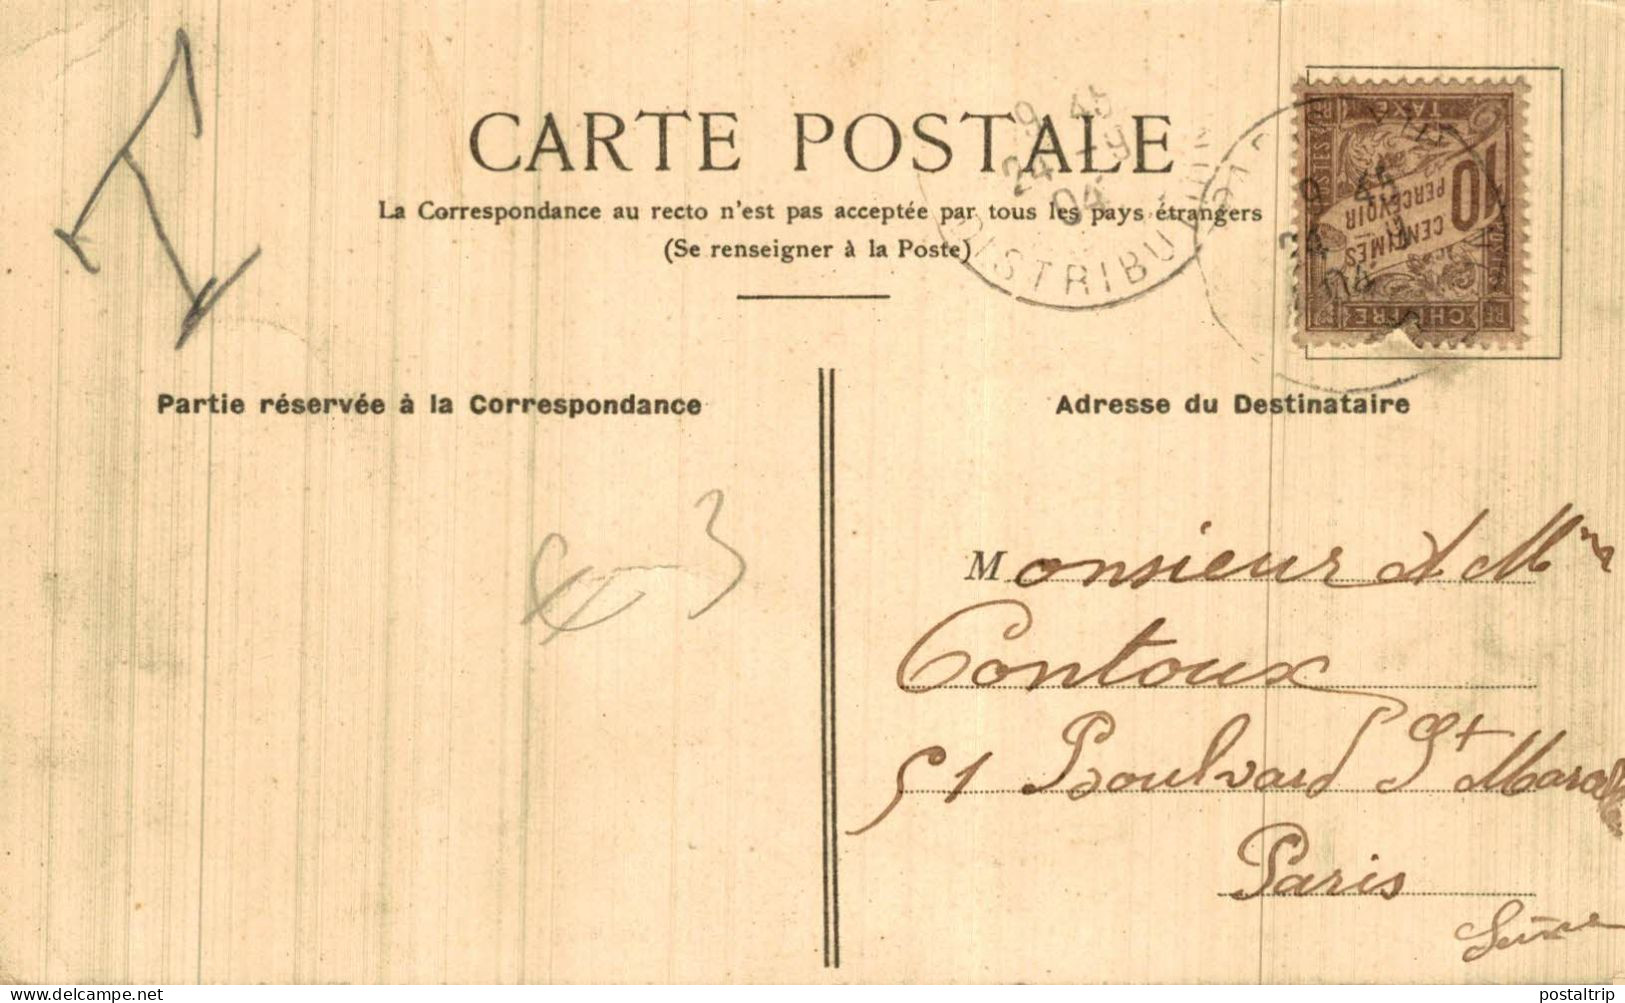 T
CARTE POSTALE
La Correspondance au recto n'est pas acceptée par tous les pays étrangers
(Se renseigner à la Poste)
9 45
24 -9
04
DISTRIBUTION
POSTES
TAXE
10
CENTIMES
PERCEVOIR
CHIFFRE
9 45
24 9
04
Partie réservée à la Correspondance
Adresse du Destinataire
3
Monsieur et Mme
Contoux
51 Boulvard St Marcel
Paris
Seine
postaltrip